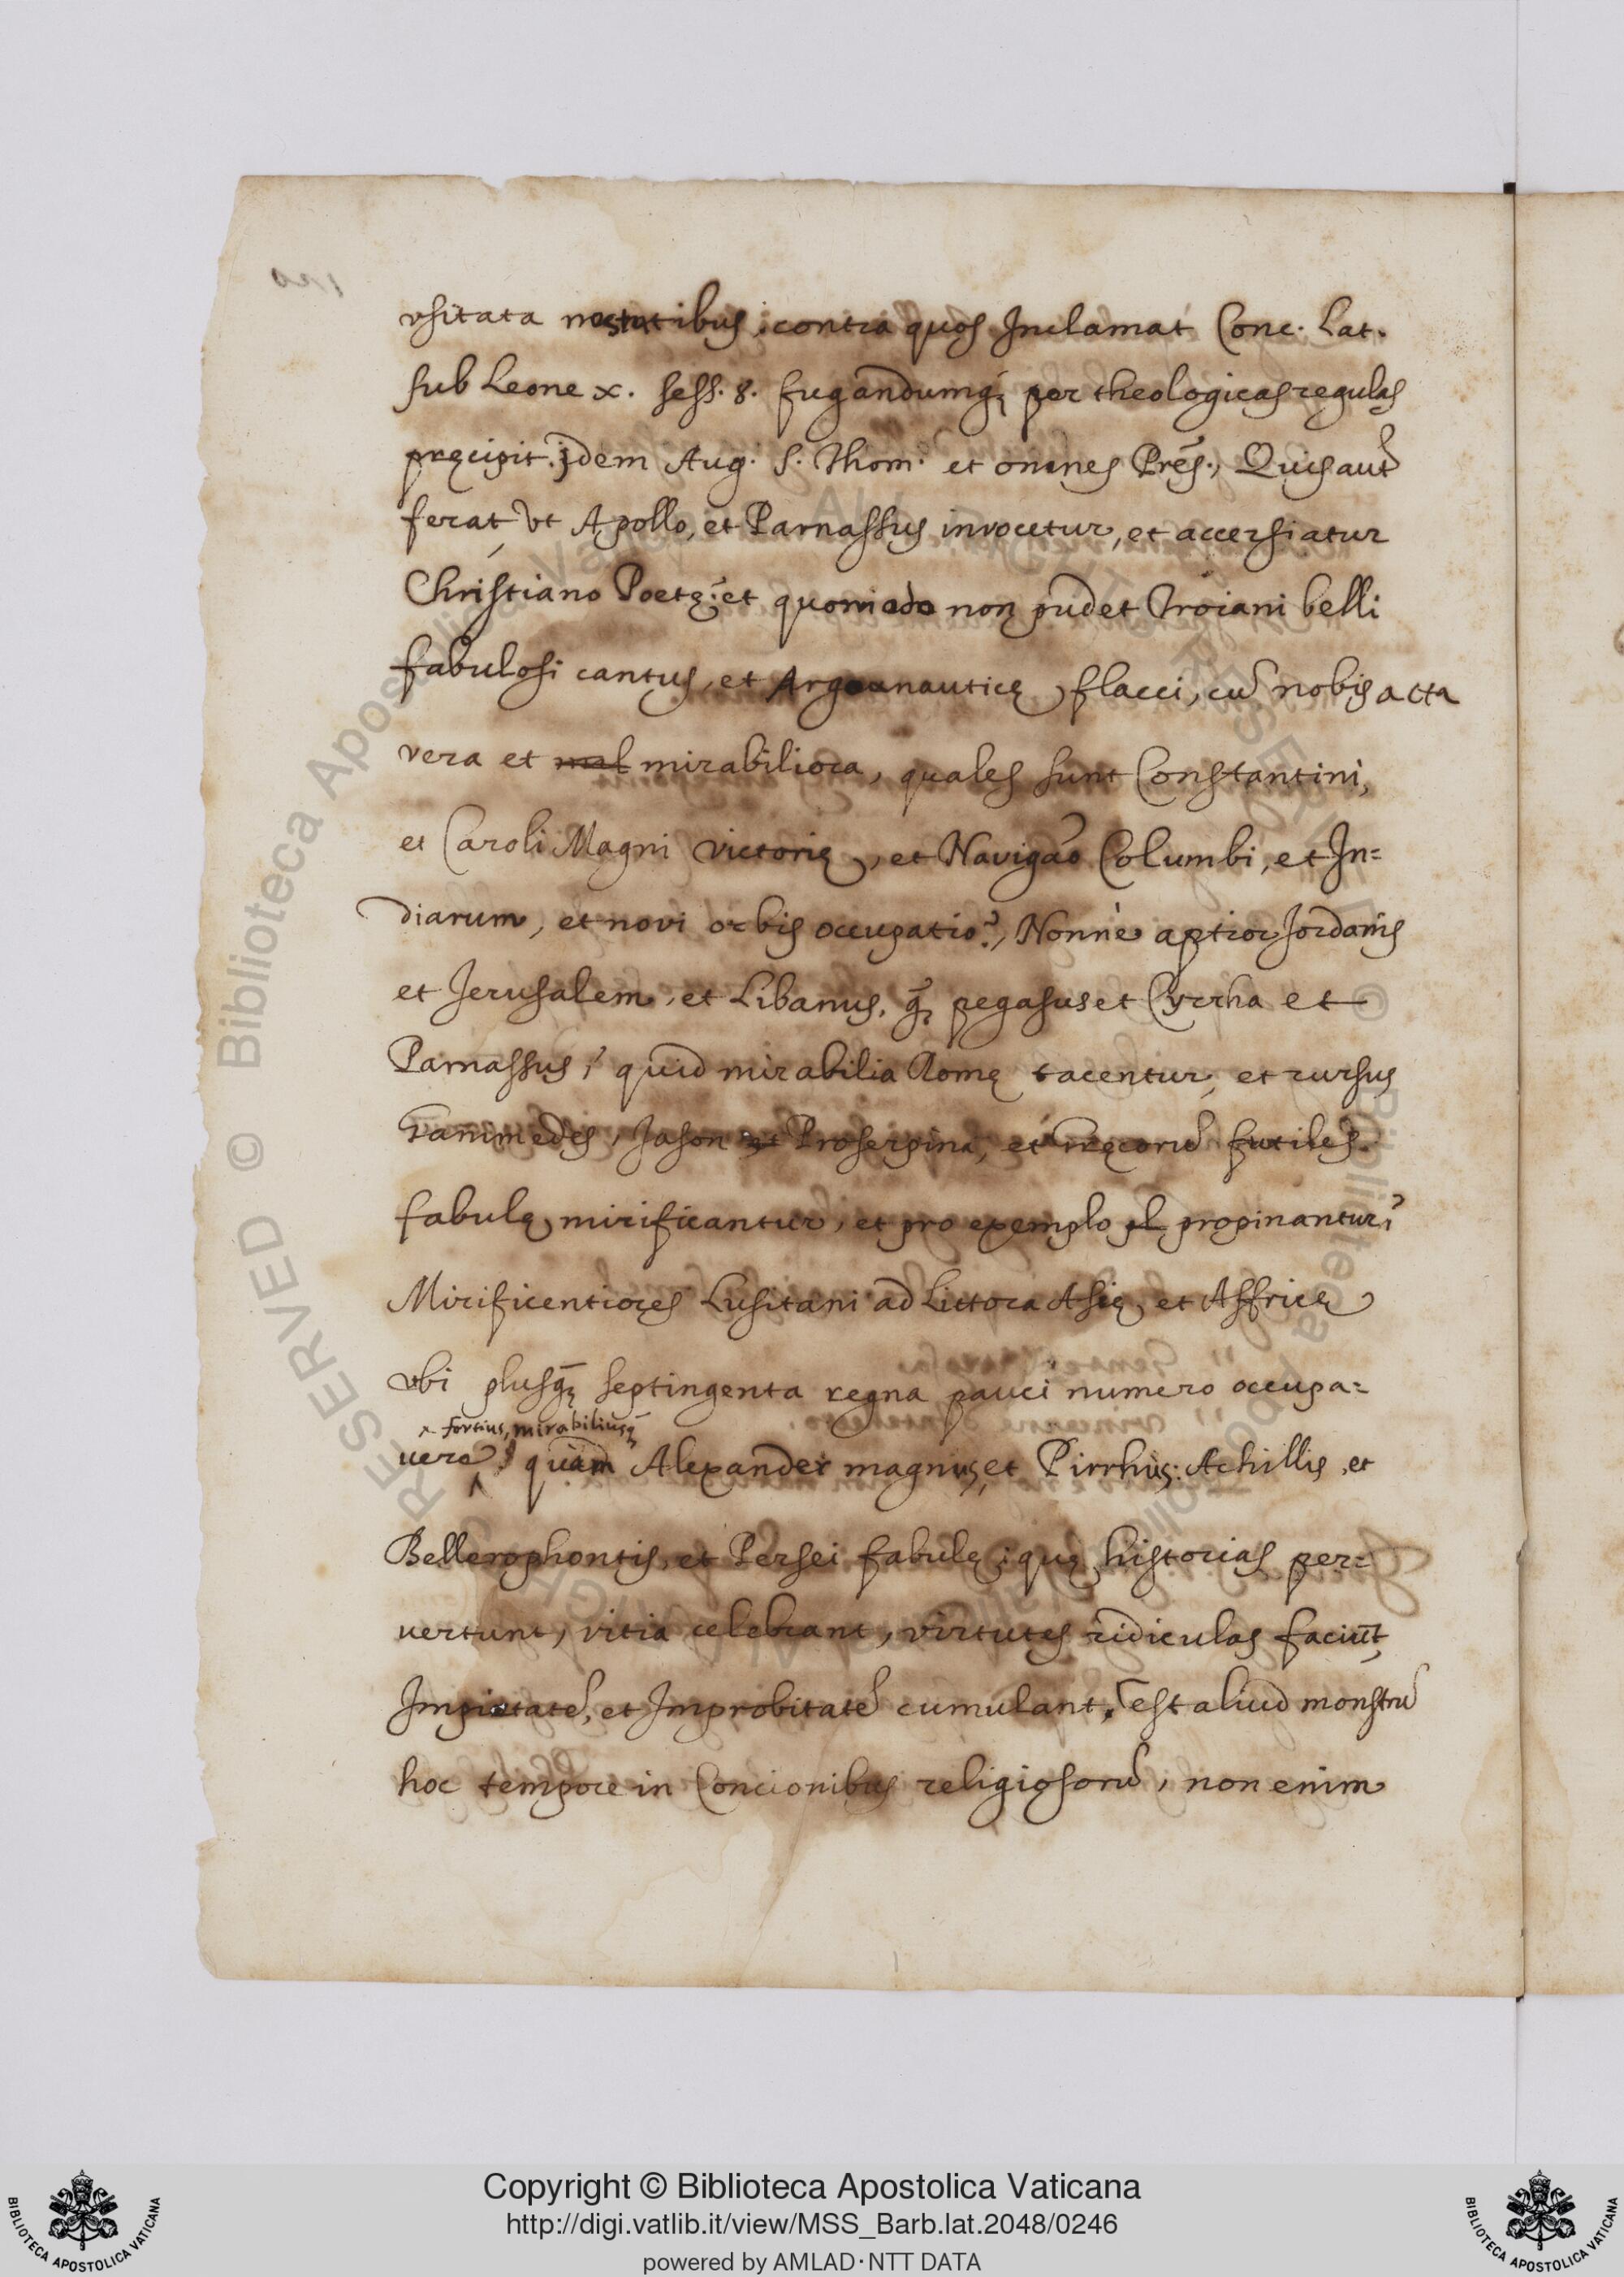 vsitata nostratibus, contra quos Inclamat Conc. Lat.
sub Leone x. sess. 8. fugandumq́; per theologicas regulas
pręcipit. jdem Aug. S. Thom. et omnes Prẽs., Quis aut̃
ferat, vt Apollo, et Parnassus invocetur, et accersiatur
Christiano Poetę: et quomodo non pudet Troiani belli
fabulosi cantus, et Argonauticę flacci, cũ nobis acta
vera et mirabiliora, quales sunt Constantini,
et Caroli Magni victorię, et Navigaõ Columbi, et In=
diarum, et novi orbis occupatio?, Nonnè aptior Jordanis
et Jerusalem, et Libanus, q̃; pegasus et Cyrrha et
Parnassus,? quid mirabilia Romę tacentur, et rursus
Ganimedes, Jason et Proserpina, et Gręcorũ futiles
fabulę mirificantur, et pro exemplo propinantur,?
Mirificentiores Lusitani ad Littora Asię, et Affricę
vbi plusq̃; septingenta regna pauci numero occupa=
fortius, mirabiliusq̃;
uere, quàm Alexander magnus, et Pirrhus: Achillis, et
Bellerophontis, et Persei fabulę; quę historias per=
uertunt, vitia celebrant, virtutes ridiculas faciũt,
Impietatẽ, et Improbitatẽ cumulant. est aliud monstrũ
hoc tempore in Concionibus religiosorũ, non enim
Copyright © Biblioteca Apostolica Vaticana
http://digi.vatlib.it/view/MSS_Barb.lat.2048/0246
powered by AMLAD·NTT DATA
BIBLIOTECA APOSTOLICA VATICANA
BIBLIOTECA APOSTOLICA VATICANA